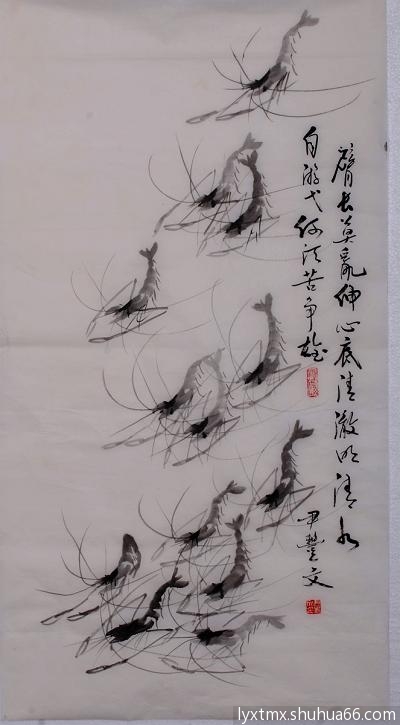 臂长莫乱伸心底清澈明清水
自游弋何须苦争雄
尹丰文
lyxtmx.shuhua66.com